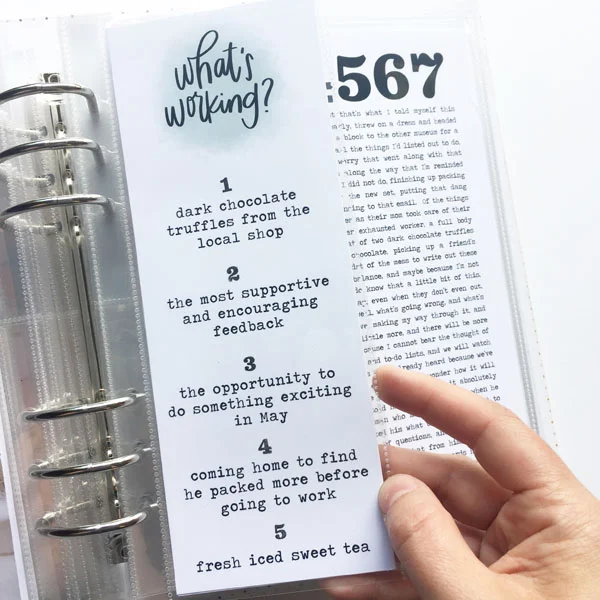 what's
working?
1
dark chocolate
truffles from the
local shop
2
the most supportive
and encouraging
feedback
3
the opportunity to
do something exciting
in May
4
coming home to find
he packed more before
going to work
5
fresh iced sweet tea
:567
that's what I told myself this
threw on a dress and headed
a block to the other museum for a
the things I'd listed out to do,
worry that went along with that
along the way that I'm reminded
I did not do, finishing up packing
the new set, putting that dang
to that email. Of the things
as their mom took care of their
exhausted worker, a full body
of two dark chocolate truffles
chocolate, picking up a friend's
of the mess to write out these
and maybe because I'm not
know that a little bit of this,
even when they don't even out.
what's going wrong, and what's
making my way through it, and
little more, and there will be more
I cannot bear the thought of
and to-do lists, and we will watch
already heard because we've
wonder how it will
it absolutely
when he
to
him what
of questions, and
that from him